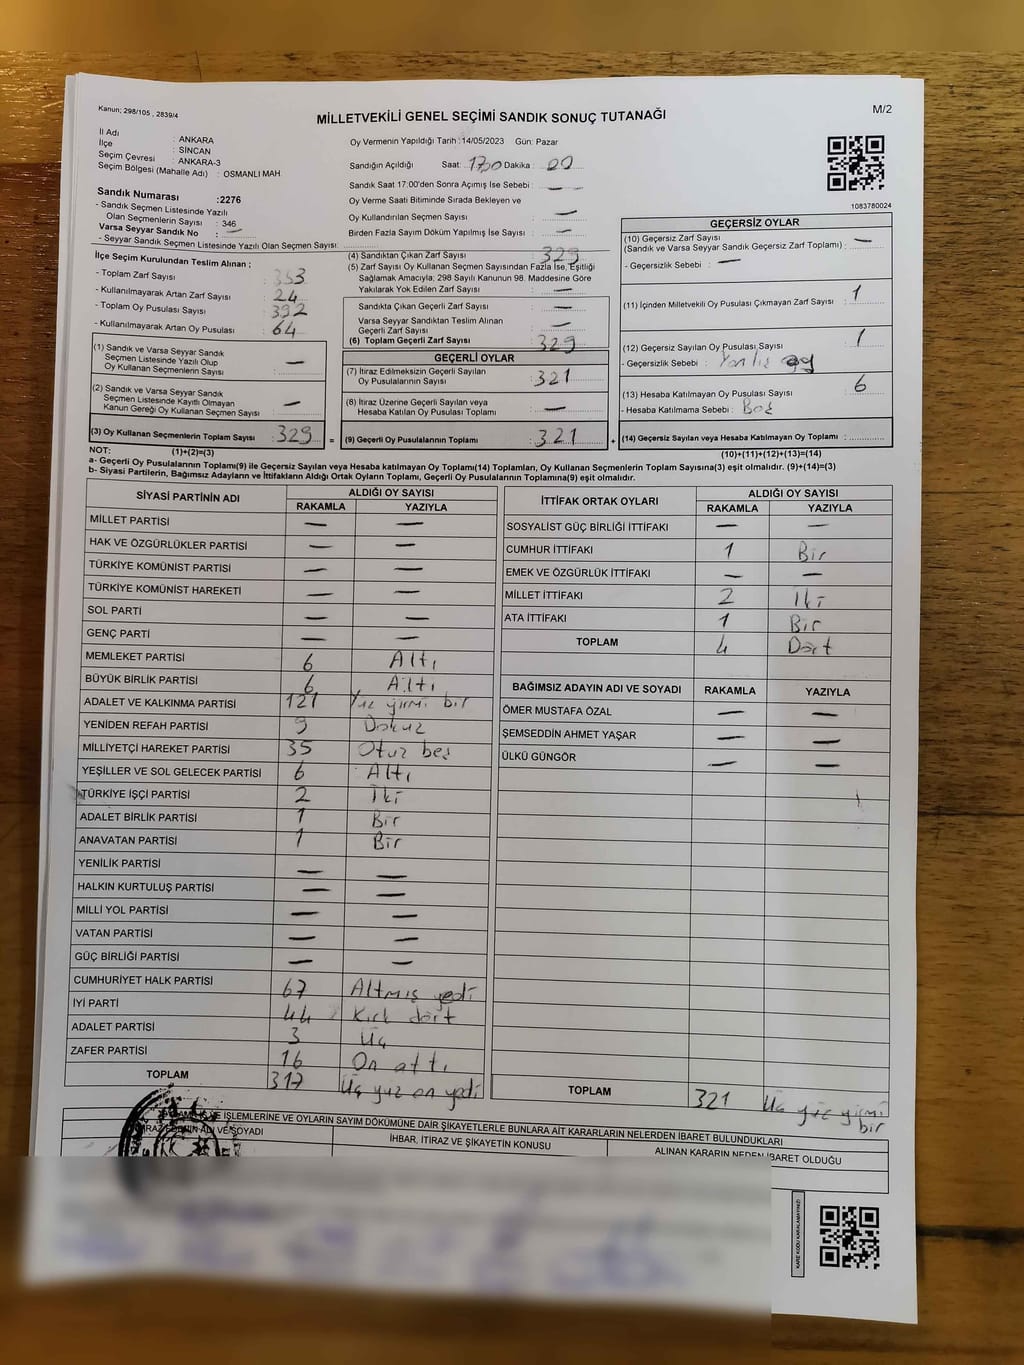 Kanun; 298/105 , 2839/4
MİLLETVEKİLİ GENEL SEÇİMİ SANDIK SONUÇ TUTANAĞI
M/2
İl Adı : ANKARA
İlçe : SİNCAN
Seçim Çevresi : ANKARA-3
Seçim Bölgesi (Mahalle Adı) : OSMANLI MAH
Sandık Numarası :2276
- Sandık Seçmen Listesinde Yazılı
Olan Seçmenlerin Sayısı : 346
Varsa Seyyar Sandık No : —
- Seyyar Sandık Seçmen Listesinde Yazılı Olan Seçmen Sayısı:
Oy Vermenin Yapıldığı Tarih :14/05/2023 Gün: Pazar
Sandığın Açıldığı Saat: 1700 Dakika : 00
Sandık Saat 17:00'den Sonra Açımış İse Sebebi : — —
Oy Verme Saati Bitiminde Sırada Bekleyen ve
Oy Kullandırılan Seçmen Sayısı : —
Birden Fazla Sayım Döküm Yapılmış İse Sayısı : —
1083780024
İlçe Seçim Kurulundan Teslim Alınan ;
- Toplam Zarf Sayısı : 353
- Kullanılmayarak Artan Zarf Sayısı : 24
- Toplam Oy Pusulası Sayısı : 392
- Kullanılmayarak Artan Oy Pusulası : 64
(1) Sandık ve Varsa Seyyar Sandık
Seçmen Listesinde Yazılı Olup
Oy Kullanan Seçmenlerin Sayısı : —
(2) Sandık ve Varsa Seyyar Sandık
Seçmen Listesinde Kayıtlı Olmayan
Kanun Gereği Oy Kullanan Seçmen Sayısı : —
(3) Oy Kullanan Seçmenlerin Toplam Sayısı : 329 =
(4) Sandıktan Çıkan Zarf Sayısı : 329
(5) Zarf Sayısı Oy Kullanan Seçmen Sayısından Fazla İse, Eşitliği
Sağlamak Amacıyla; 298 Sayılı Kanunun 98. Maddesine Göre
Yakılarak Yok Edilen Zarf Sayısı : —
Sandıkta Çıkan Geçerli Zarf Sayısı : —
Varsa Seyyar Sandıktan Teslim Alınan
Geçerli Zarf Sayısı : —
(6) Toplam Geçerli Zarf Sayısı : 329
GEÇERLİ OYLAR
(7) İtiraz Edilmeksizin Geçerli Sayılan
Oy Pusulalarının Sayısı : 321
(8) İtiraz Üzerine Geçerli Sayılan veya
Hesaba Katılan Oy Pusulası Toplamı : —
(9) Geçerli Oy Pusulalarının Toplamı : 321 +
GEÇERSİZ OYLAR
(10) Geçersiz Zarf Sayısı
(Sandık ve Varsa Seyyar Sandık Geçersiz Zarf Toplamı) : —
- Geçersizlik Sebebi : —
(11) İçinden Milletvekili Oy Pusulası Çıkmayan Zarf Sayısı : 1
(12) Geçersiz Sayılan Oy Pusulası Sayısı : 1
- Geçersizlik Sebebi : Yanlış oy
(13) Hesaba Katılmayan Oy Pusulası Sayısı : 6
- Hesaba Katılmama Sebebi : Boş
(14) Geçersiz Sayılan veya Hesaba Katılmayan Oy Toplamı :
NOT: (1)+(2)=(3) (10)+(11)+(12)+(13)=(14)
a- Geçerli Oy Pusulalarının Toplamı(9) ile Geçersiz Sayılan veya Hesaba katılmayan Oy Toplamı(14) Toplamları, Oy Kullanan Seçmenlerin Toplam Sayısına(3) eşit olmalıdır. (9)+(14)=(3)
b- Siyasi Partilerin, Bağımsız Adayların ve İttifakların Aldığı Ortak Oyların Toplamı, Geçerli Oy Pusulalarının Toplamına(9) eşit olmalıdır.
SİYASİ PARTİNİN ADI ALDIĞI OY SAYISI
RAKAMLA YAZIYLA
MİLLET PARTİSİ — —
HAK VE ÖZGÜRLÜKLER PARTİSİ — —
TÜRKİYE KOMÜNİST PARTİSİ — —
TÜRKİYE KOMÜNİST HAREKETİ — —
SOL PARTİ — —
GENÇ PARTİ — —
MEMLEKET PARTİSİ 6 Altı
BÜYÜK BİRLİK PARTİSİ 6 Altı
ADALET VE KALKINMA PARTİSİ 121 Yüz yirmi bir
YENİDEN REFAH PARTİSİ 9 Dokuz
MİLLİYETÇİ HAREKET PARTİSİ 35 Otuz beş
YEŞİLLER VE SOL GELECEK PARTİSİ 6 Altı
TÜRKİYE İŞÇİ PARTİSİ 2 İki
ADALET BİRLİK PARTİSİ 1 Bir
ANAVATAN PARTİSİ 1 Bir
YENİLİK PARTİSİ — —
HALKIN KURTULUŞ PARTİSİ — —
MİLLİ YOL PARTİSİ — —
VATAN PARTİSİ — —
GÜÇ BİRLİĞİ PARTİSİ — —
CUMHURİYET HALK PARTİSİ 67 Altmış yedi
İYİ PARTİ 44 Kırk dört
ADALET PARTİSİ 3 Üç
ZAFER PARTİSİ 16 On altı
TOPLAM 317 Üç yüz on yedi
İTTİFAK ORTAK OYLARI ALDIĞI OY SAYISI
RAKAMLA YAZIYLA
SOSYALİST GÜÇ BİRLİĞİ İTTİFAKI — —
CUMHUR İTTİFAKI 1 Bir
EMEK VE ÖZGÜRLÜK İTTİFAKI — —
MİLLET İTTİFAKI 2 İki
ATA İTTİFAKI 1 Bir
TOPLAM 4 Dört
BAĞIMSIZ ADAYIN ADI VE SOYADI RAKAMLA YAZIYLA
ÖMER MUSTAFA ÖZAL — —
ŞEMSEDDİN AHMET YAŞAR — —
ÜLKÜ GÜNGÖR — —
TOPLAM 321 Üç yüz yirmi
bir
İŞLEMLERİNE VE OYLARIN SAYIM DÖKÜMÜNE DAİR ŞİKAYETLERLE BUNLARA AİT KARARLARIN NELERDEN İBARET BULUNDUKLARI
ADI VE SOYADI İHBAR, İTİRAZ VE ŞİKAYETİN KONUSU ALINAN KARARIN NEDEN İBARET OLDUĞU
KARE KODU KARALAMAYINIZ!